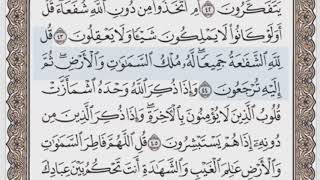 يَتَفَكَّرُونَ ٤٢ أَمِ ٱتَّخَذُوا۟ مِن دُونِ ٱللَّهِ شُفَعَآءَ قُلْ
أَوَلَوْ كَانُوا۟ لَا يَمْلِكُونَ شَيْـًٔا وَلَا يَعْقِلُونَ ٤٣ قُل
لِّلَّهِ ٱلشَّفَـٰعَةُ جَمِيعًا لَّهُۥ مُلْكُ ٱلسَّمَـٰوَٰتِ وَٱلْأَرْضِ ثُمَّ
إِلَيْهِ تُرْجَعُونَ ٤٤ وَإِذَا ذُكِرَ ٱللَّهُ وَحْدَهُ ٱشْمَأَزَّتْ
قُلُوبُ ٱلَّذِينَ لَا يُؤْمِنُونَ بِٱلْـَٔاخِرَةِ وَإِذَا ذُكِرَ ٱلَّذِينَ مِن
دُونِهِۦٓ إِذَا هُمْ يَسْتَبْشِرُونَ ٤٥ قُلِ ٱللَّهُمَّ فَاطِرَ ٱلسَّمَـٰوَٰتِ
وَٱلْأَرْضِ عَـٰلِمَ ٱلْغَيْبِ وَٱلشَّهَـٰدَةِ أَنتَ تَحْكُمُ بَيْنَ عِبَادِكَ